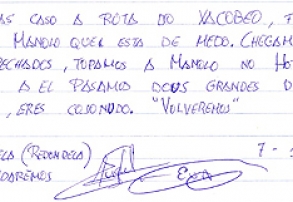 AS CASO A ROTA DO XACOBEO,
MANOLO QUER ESTA DE MEDO. CHEGAM
PECHADOS, TOPAMOS A MANOLO NO HO
A EL PASAMOS DOUS GRANDES D
, ERES COJONUDO. "VOLVEREMOS"
ELA (REDONDELA) 7-
DAREMOS